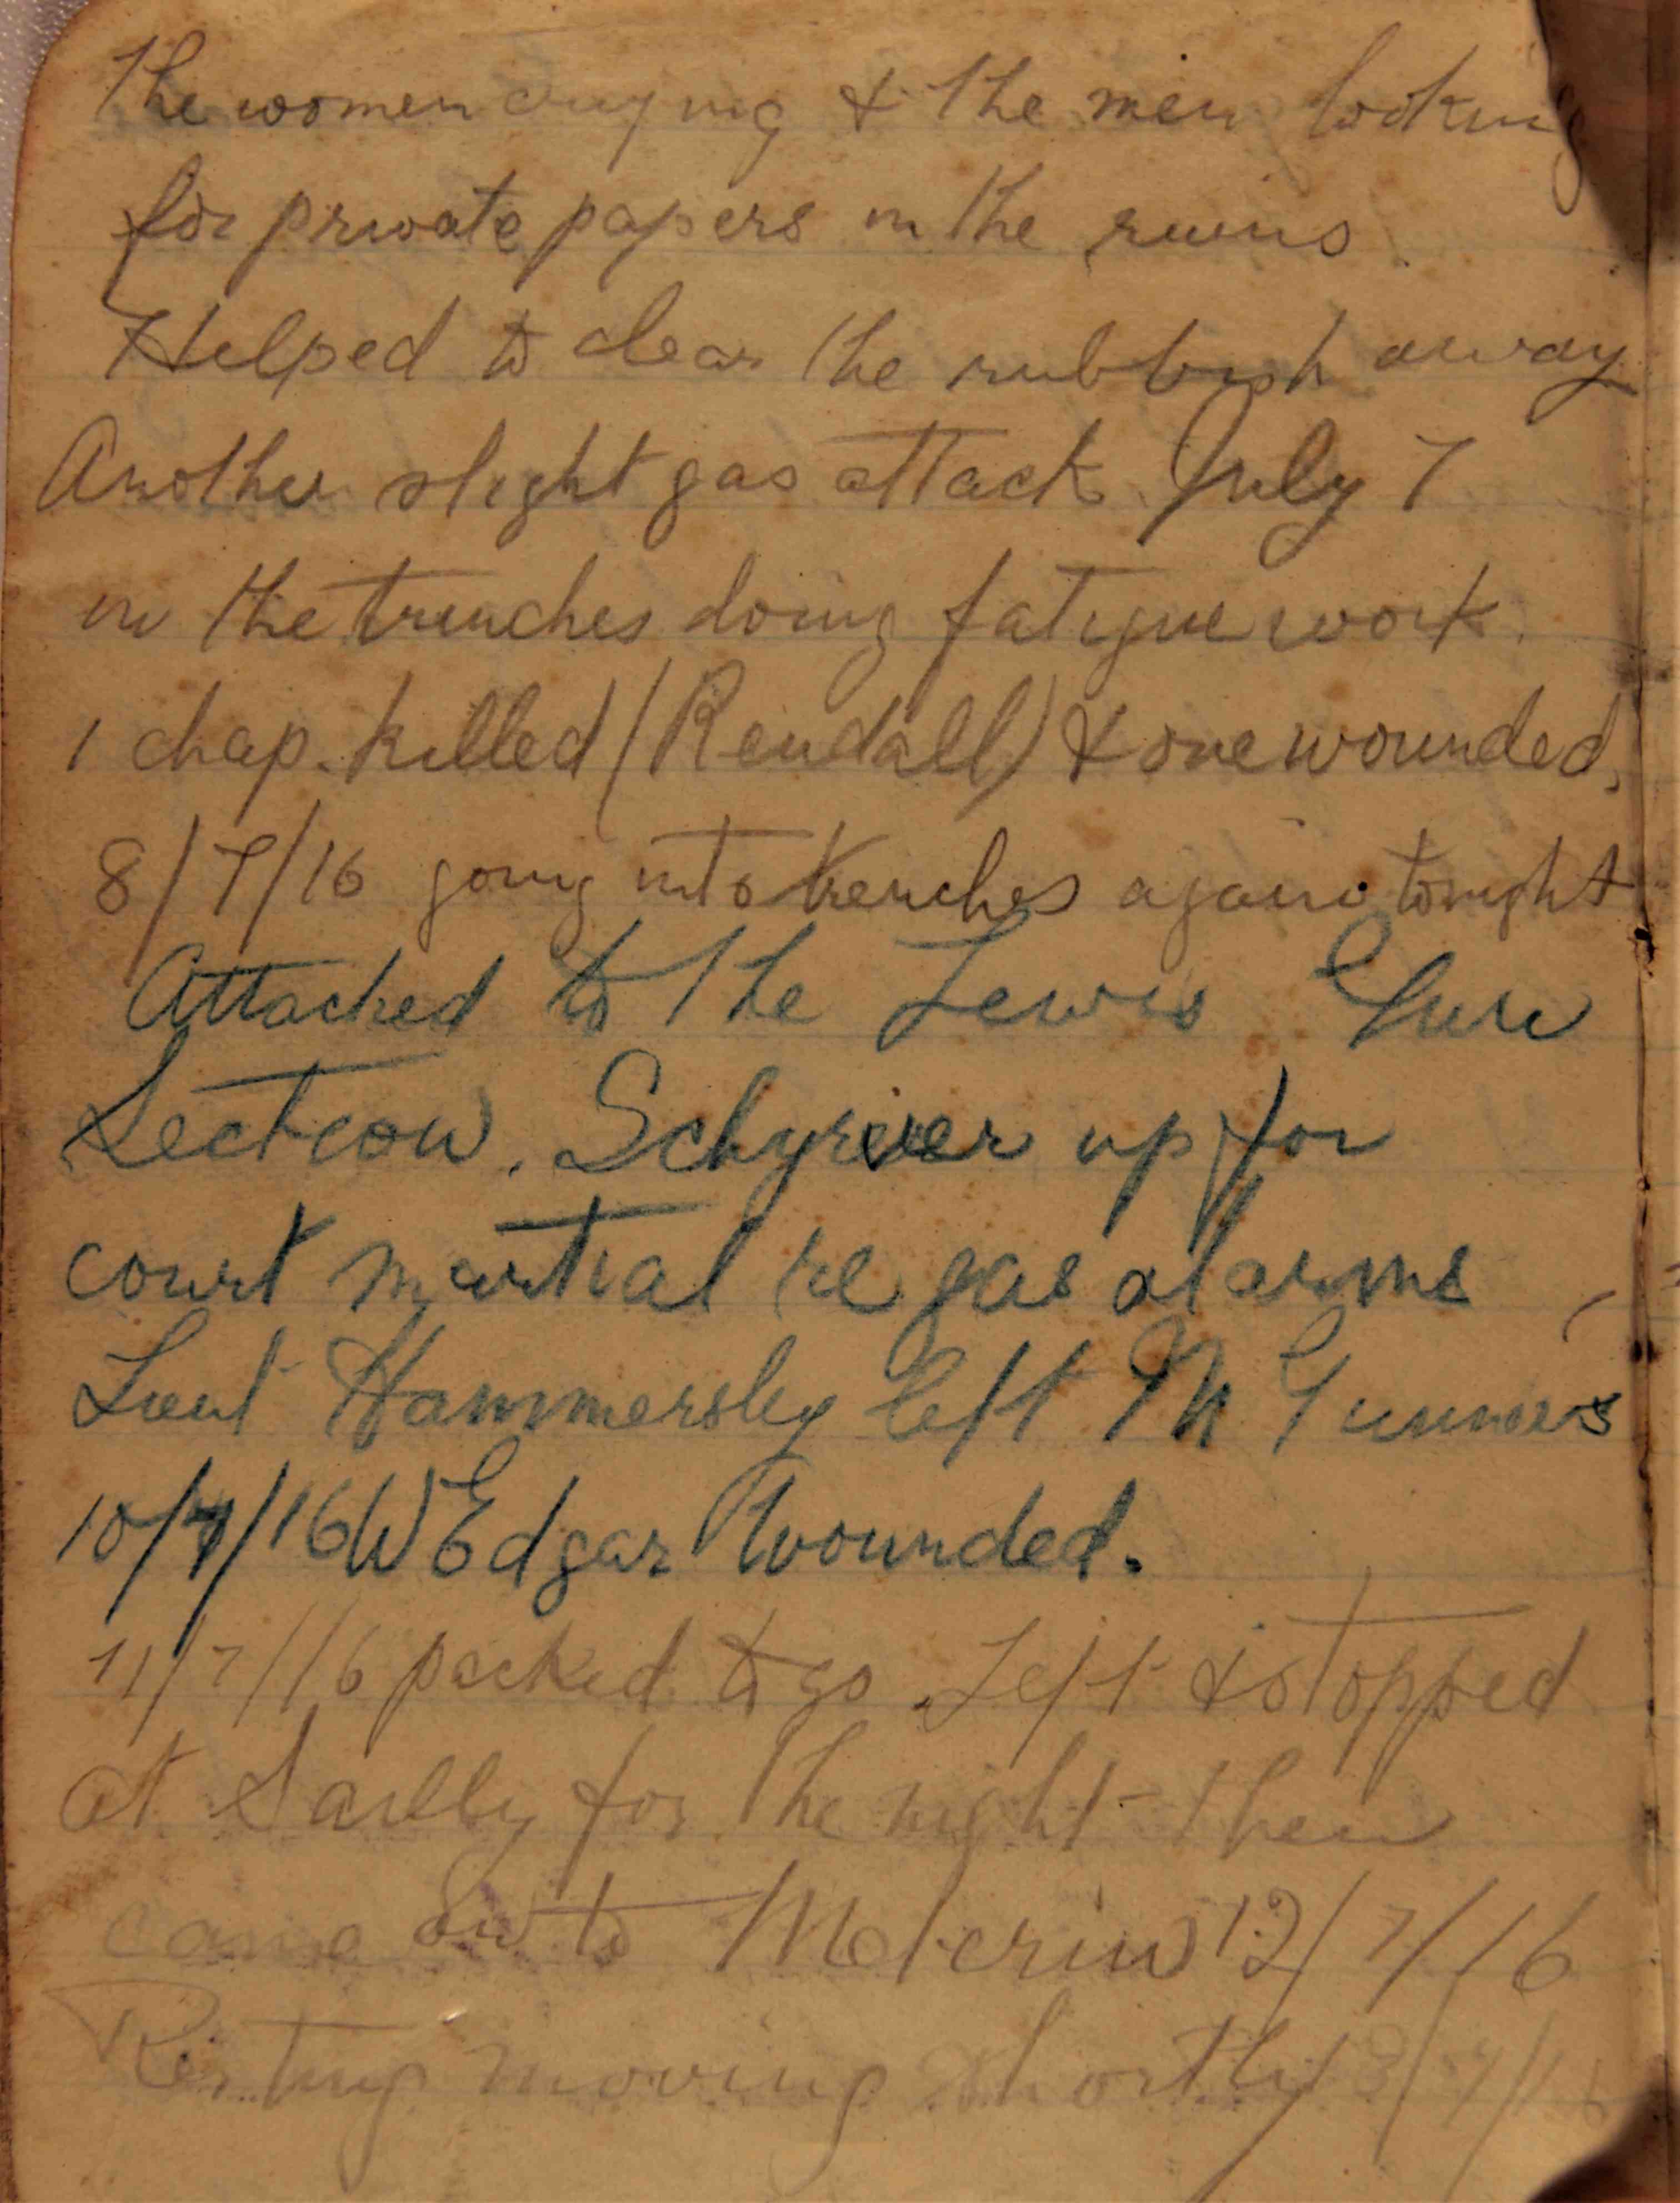 the women crying & the men looking
for private papers in the ruins
Helped to clear the rubbish away
Another slight gas attack July 7
in the trenches doing fatigue work.
1 chap killed (Rendall) & one wounded,
8/7/16 going into trenches again tonight
Attached to the Lewis Gun
Section. Schyrever up for
court martial re gas alarms
Lieut Hammersley left M Gunners
10/7/16 W Edgar Wounded.
11/7/16 packed to go. Left & stopped
at Sailly for the night then
came on to Meterin 12/7/16
Resting moving shortly 13/7/16